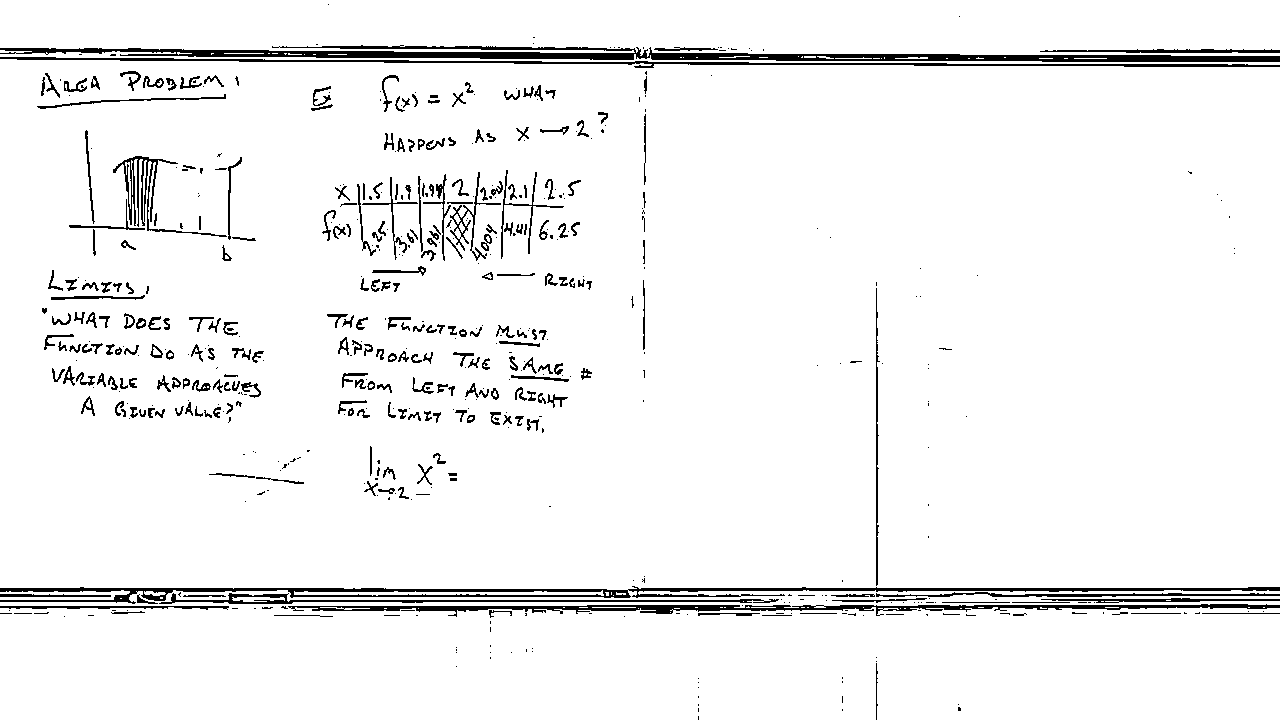 AREA PROBLEM:
a
b
LIMITS:
"WHAT DOES THE
FUNCTION DO AS THE
VARIABLE APPROACHES
A GIVEN VALUE?"
EX f(x) = x² WHAT
HAPPENS AS X → 2?
X 1.5 1.9 1.99 2 2.001 2.1 2.5
f(x) 2.25 3.61 3.961 4.004 4.41 6.25
LEFT RIGHT
THE FUNCTION MUST
APPROACH THE SAME #
FROM LEFT AND RIGHT
FOR LIMIT TO EXIST.
lim X² =
X→2